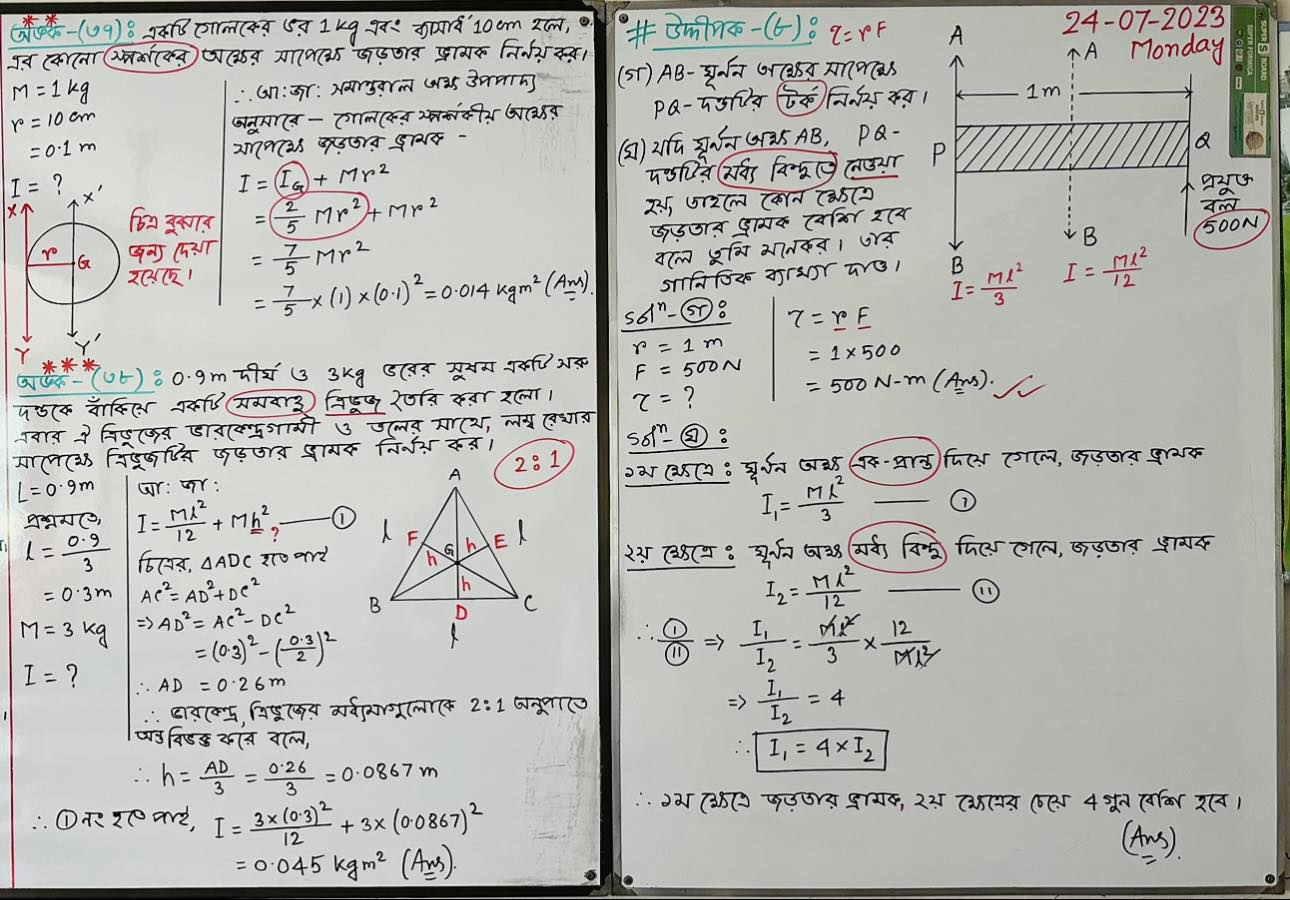 অংক-(৩৭): একটি গোলকের ভর 1 kg এবং ব্যাসার্ধ 10 cm হলে,
এর কোনো স্পর্শকের অক্ষের সাপেক্ষে জড়তার ভ্রামক নির্ণয় কর।
M = 1 kg
r = 10 cm
= 0.1 m
I = ?
X
X'
r
G
Y
Y'
চিত্র বুঝার
জন্য দেয়া
হয়েছে।
∴ আ: জা: সমান্তরাল অক্ষ উপপাদ্য
অনুসারে – গোলকের স্পর্শকীয় অক্ষের
সাপেক্ষে জড়তার ভ্রামক -
I = I_G + Mr²
= 2/5 Mr² + Mr²
= 7/5 Mr²
= 7/5 × (1) × (0.1)² = 0.014 kgm² (Ans).
অংক-(৩৮): 0.9m দীর্ঘ ও 3kg ভরের সুষম একটি সরু
দন্ডকে বাঁকিয়ে একটি সমবাহু ত্রিভুজ তৈরি করা হলো।
এবার ঐ ত্রিভুজের ভারকেন্দ্রগামী ও তলের সাথে, লম্ব রেখার
সাপেক্ষে ত্রিভুজটির জড়তার ভ্রামক নির্ণয় কর।
2:1
L = 0.9m
প্রশ্নমতে,
l = 0.9/3
= 0.3m
M = 3 kg
I = ?
আ: জা:
I = Ml²/12 + Mh² ? —— ①
চিত্রের, ΔADC হতে পাই
AC² = AD² + DC²
⇒ AD² = AC² - DC²
= (0.3)² - (0.3/2)²
∴ AD = 0.26m
A
l
F
G
h
E
l
h
h
B
D
C
l
∴ ভারকেন্দ্র, ত্রিভুজের মধ্যমাগুলোকে 2:1 অনুপাতে
অন্তবিভক্ত করে বলে,
∴ h = AD/3 = 0.26/3 = 0.0867 m
∴ ① নং হতে পাই, I = 3×(0.3)²/12 + 3×(0.0867)²
= 0.045 kgm² (Ans).
# উদ্দীপক-(৮): τ = rF
24-07-2023
Monday
(গ) AB-ঘূর্নন অক্ষের সাপেক্ষে
PQ-দন্ডটির টর্ক নির্নয় কর।
(ঘ) যদি ঘূর্নন অক্ষ AB, PQ-
দন্ডটির মধ্য বিন্দুতে নেওয়া
হয়, তাহলে কোন ক্ষেত্রে
জড়তার ভ্রামক বেশি হবে
বলে তুমি মনেকর। তার
গানিতিক ব্যাখ্যা দাও।
A
A
1m
P
Q
প্রযুক্ত
বল
500N
B
B
I = Ml²/3
I = Ml²/12
SUPER S BOARD
SUPER FORMICA
solⁿ-(গ):
r = 1 m
F = 500 N
τ = ?
τ = r F
= 1×500
= 500 N-m (Ans).
solⁿ-(ঘ):
১ম ক্ষেত্রে: ঘূর্নন অক্ষ এক-প্রান্ত দিয়ে গেলে, জড়তার ভ্রামক
I₁ = Ml²/3 —— ①
২য় ক্ষেত্রে: ঘূর্নন অক্ষ মধ্য বিন্দু দিয়ে গেলে, জড়তার ভ্রামক
I₂ = Ml²/12 —— ⑪
∴ ①/⑪ ⇒ I₁/I₂ = Ml²/3 × 12/Ml²
⇒ I₁/I₂ = 4
∴ I₁ = 4 × I₂
∴ ১ম ক্ষেত্রে জড়তার ভ্রামক, ২য় ক্ষেত্রের চেয়ে 4 গুন বেশি হবে।
(Ans).